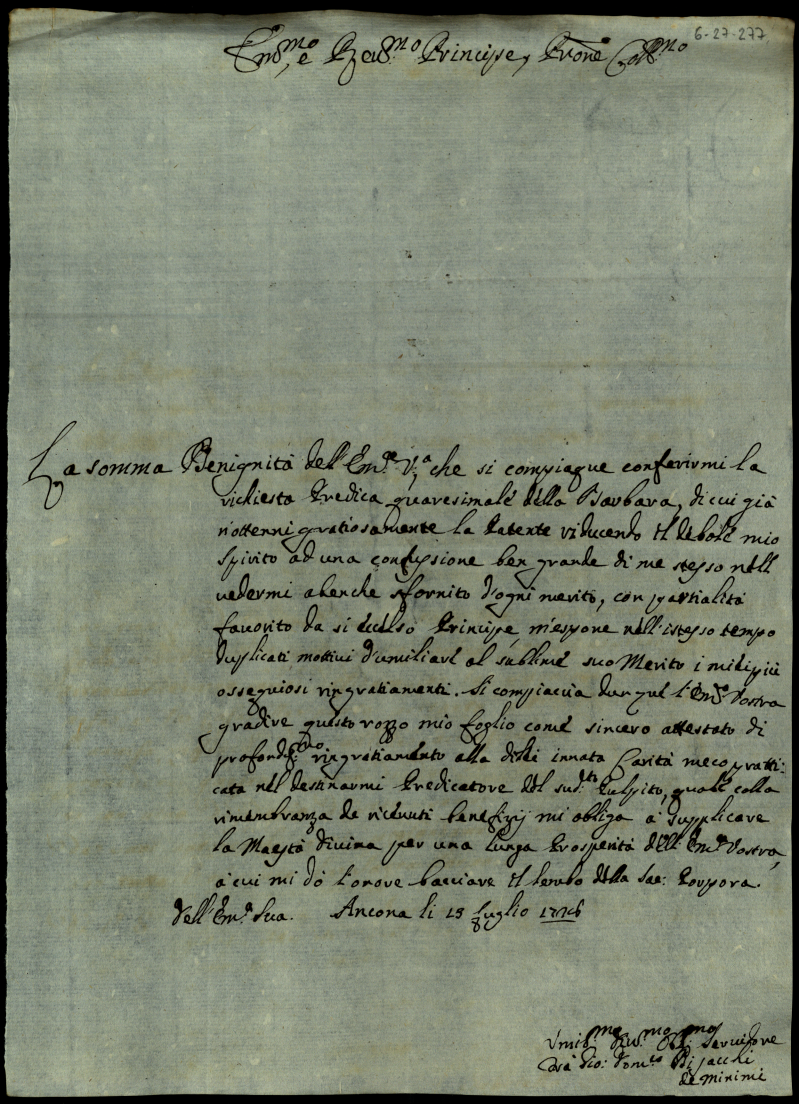 6-27-277
Em.mo e R.mo Principe, Prone Coll.mo
La somma Benignità dell'Em.ze V.a che si compiaque conferirmi la
richiesta Predica quaresimale della Barbara, di cui già
n'ottenni gratiosamente la Patente riducendo il debole mio
Spirito ad una confusione ben grande di me stesso nell
vedermi abenche sfornito d'ogni merito, con partialità
favorito da si eccelso Principe, m'espone nell'istesso tempo
duplicati mottivi d'umiliare al sublime suo Merito i miei più
ossequiosi ringratiamenti. Si compiaccia dunque l'Em.za Vostra
gradire questo rozzo mio foglio come sincero attestato di
profondis.mo ringratiamento alla di lei innata Carità meco pratti-
cata nel destinarmi Predicatore del sud.to Pulpito, quale colla
rimembranza de ricevuti benefizij mi obliga à supplicare
la Maestà divina per una lunga Prosperità dell'Em.za Vostra,
à cui mi dò l'onore bacciare il lembo della Sac: Porpora.
dell'Em.a Sua. Ancona li 15 Luglio
Umil.mo Div.mo Obl.mo Servidore
Gio: Dom.co
de Minimi